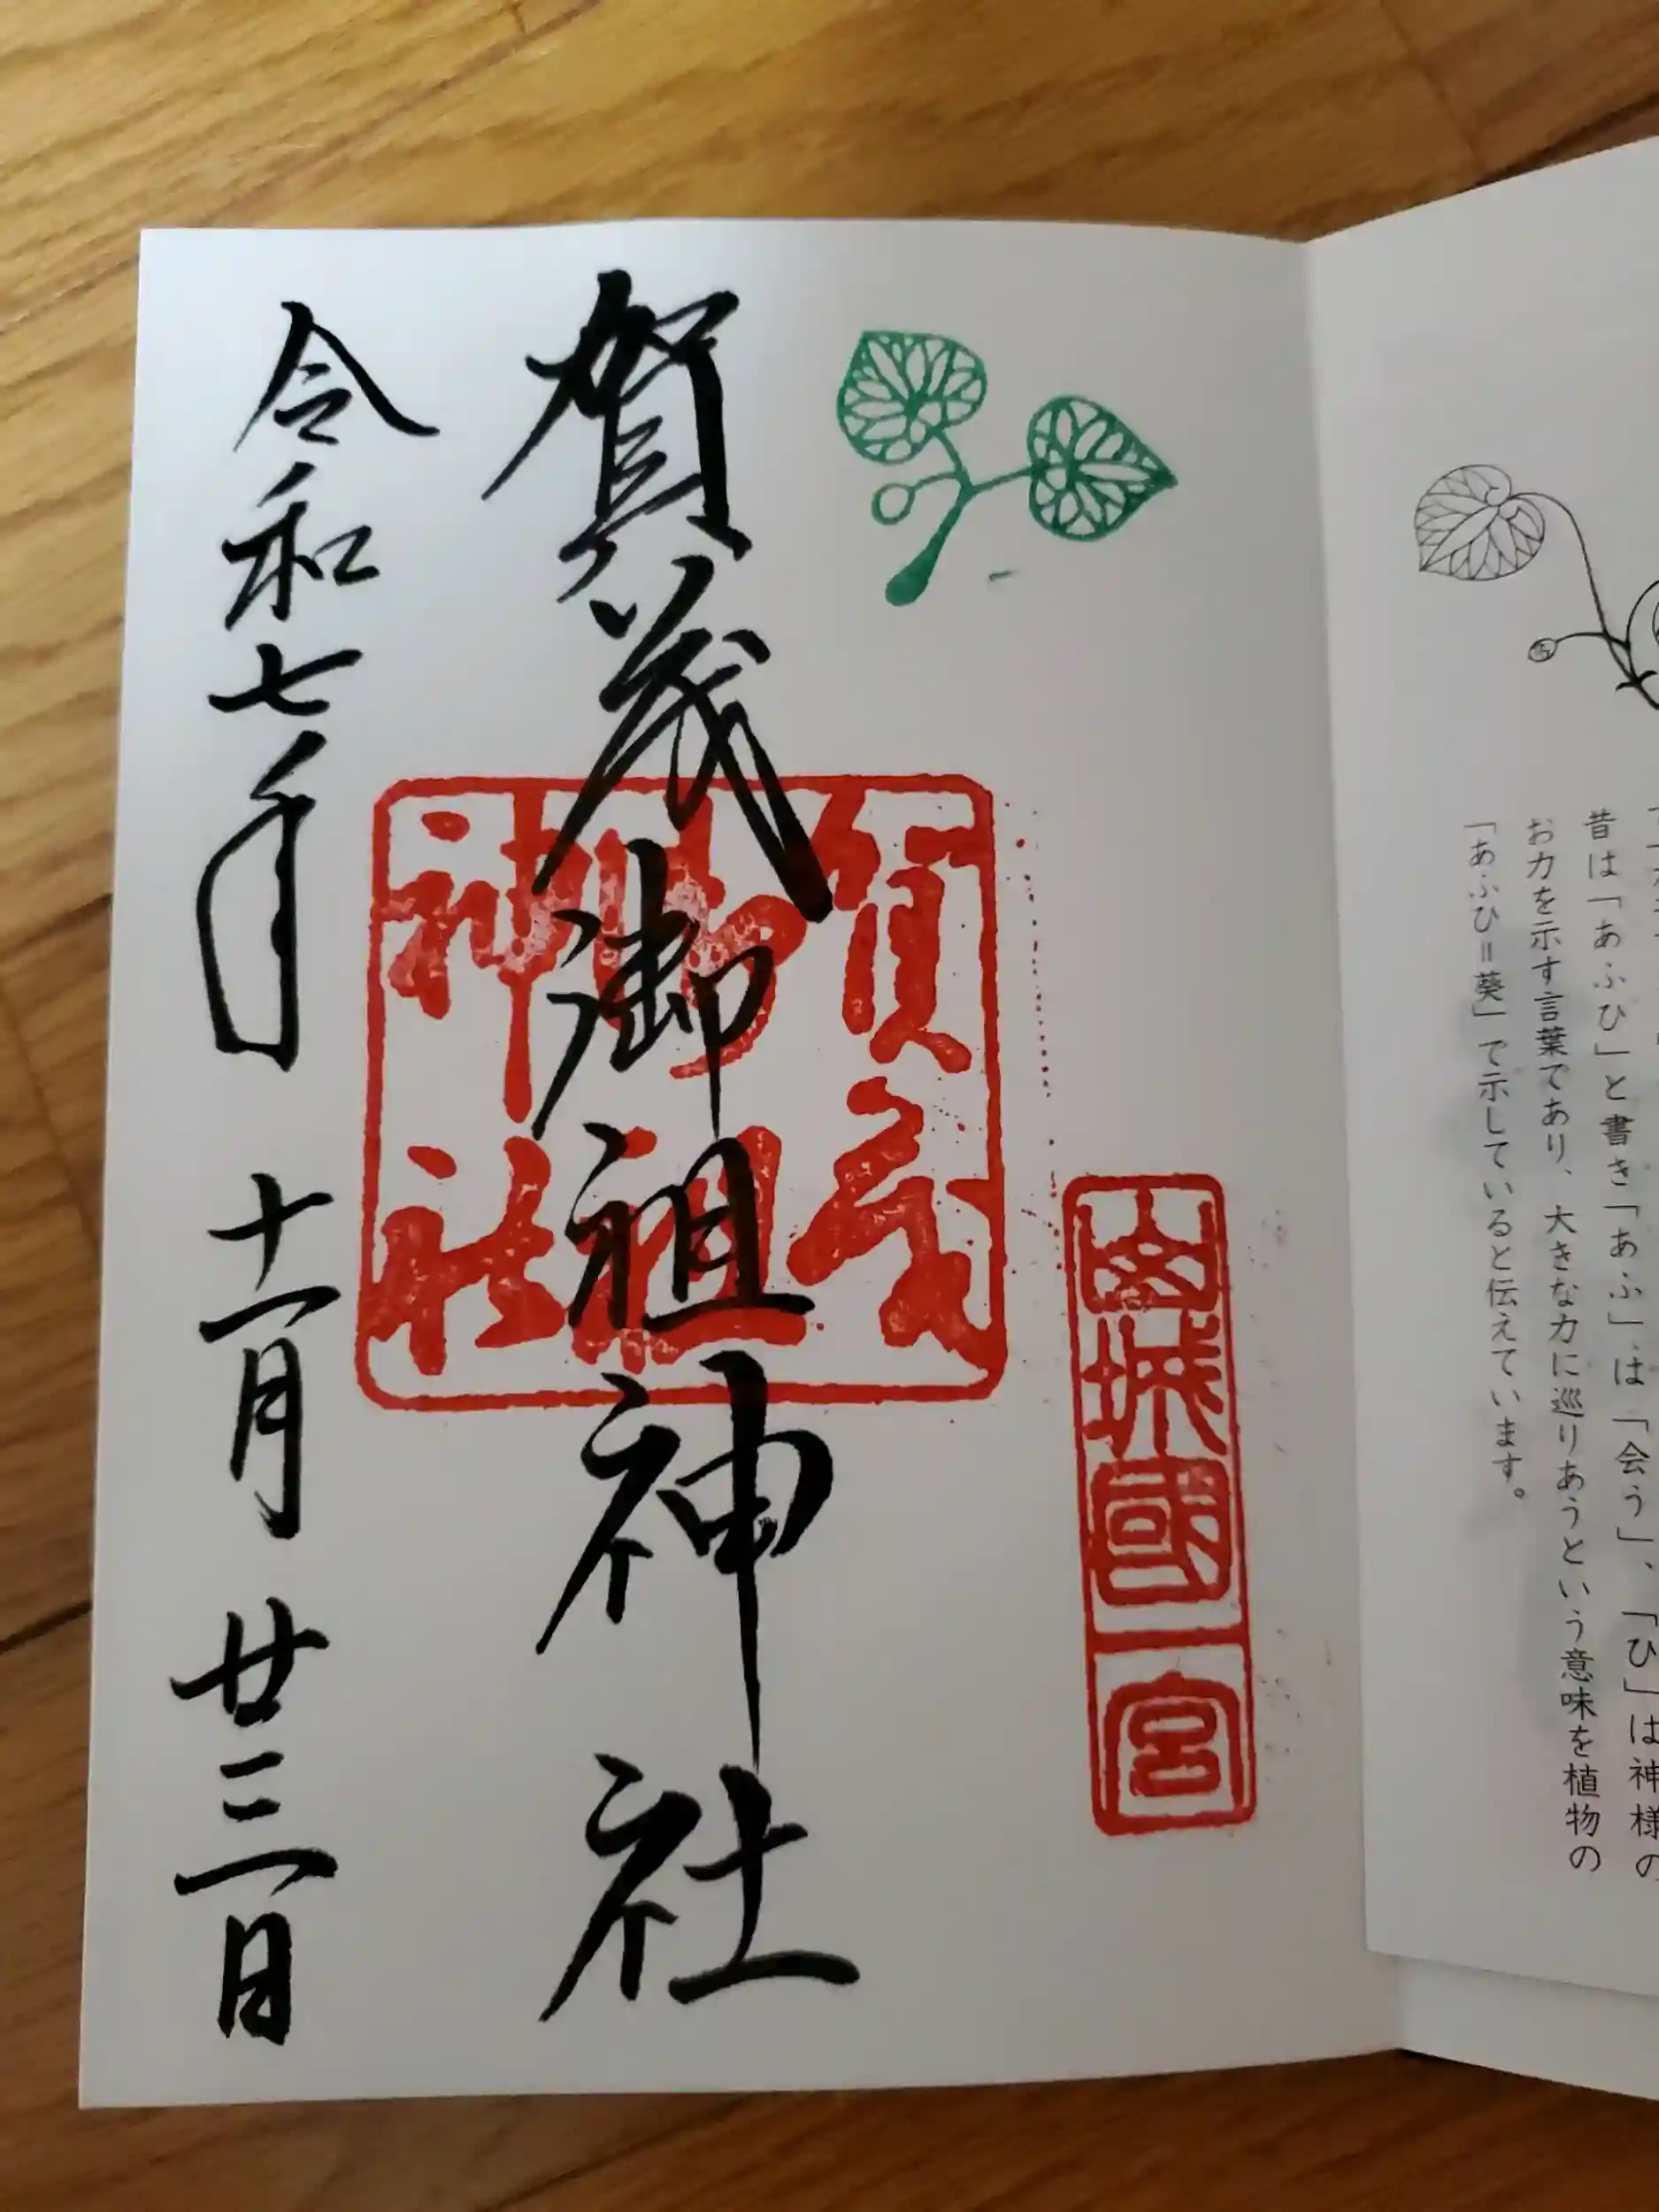 昔は「あふひ」と書き「あふ」は「会う」、「ひ」は神様の
お力を示す言葉であり、大きな力に巡りあうという意味を植物の
「あふひ=葵」で示していると伝えています。
山城國一宮
賀茂御祖神社
賀茂
御祖
神社
令和七年 十一月 廿三日